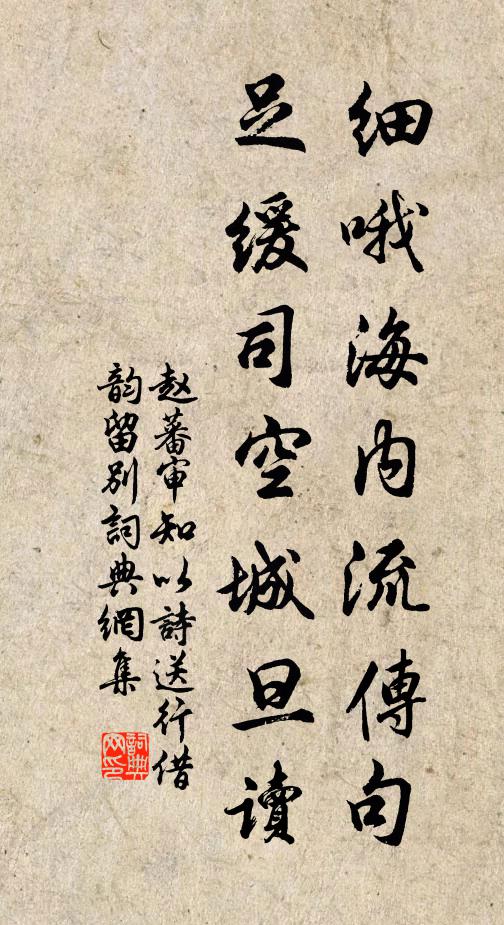 细哦海内流傳句
足缓司空城旦读
赵蕃审知以詩送行借
韵留别詞典網集
詞典
网印